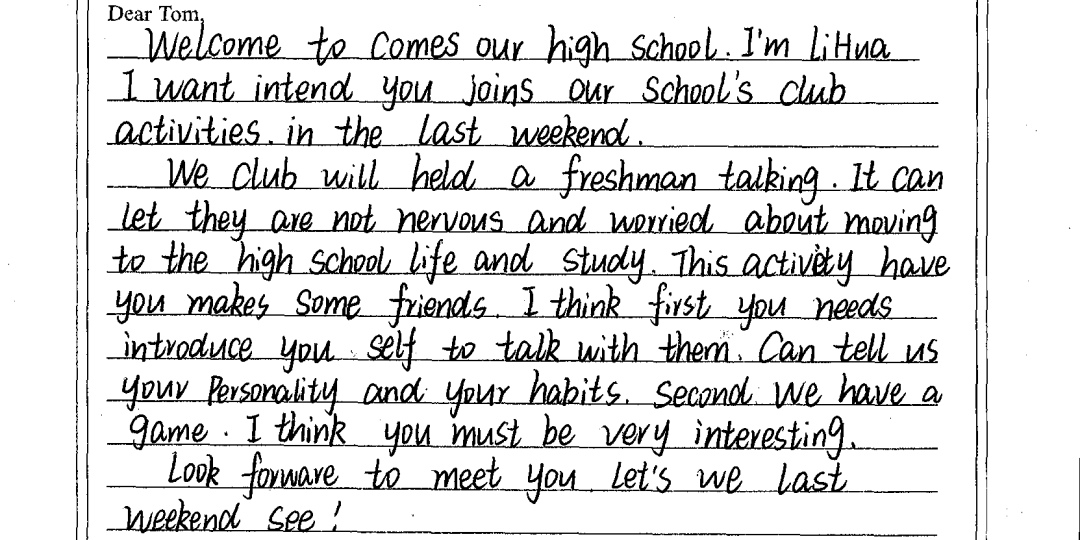 Dear Tom,
Welcome to comes our high school. I'm LiHua
I want intend you joins our school's club
activities. in the last weekend.
We club will held a freshman talking. It can
let they are not nervous and worried about moving
to the high school life and study. This activity have
you makes some friends. I think first you needs
introduce you self to talk with them. Can tell us
your Personality and your habits. Second. We have a
game. I think you must be very interesting.
Look forware to meet you. Let's we last
weekend see!